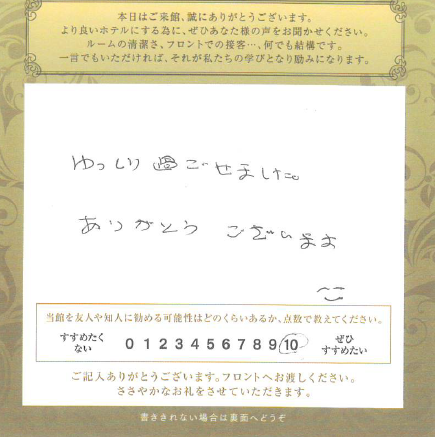 本日はご来館、誠にありがとうございます。
より良いホテルにする為に、ぜひあなた様の声をお聞かせください。
ルームの清潔さ、フロントでの接客…、何でも結構です。
一言でもいただければ、それが私たちの学びとなり励みになります。
ゆっくり過ごせました。
ありがとうございます
当館を友人や知人に勧める可能性はどのくらいあるか、点数で教えてください。
すすめたくない 0 1 2 3 4 5 6 7 8 9 10 ぜひすすめたい
ご記入ありがとうございます。フロントへお渡しください。
ささやかなお礼をさせていただきます。
書ききれない場合は裏面へどうぞ